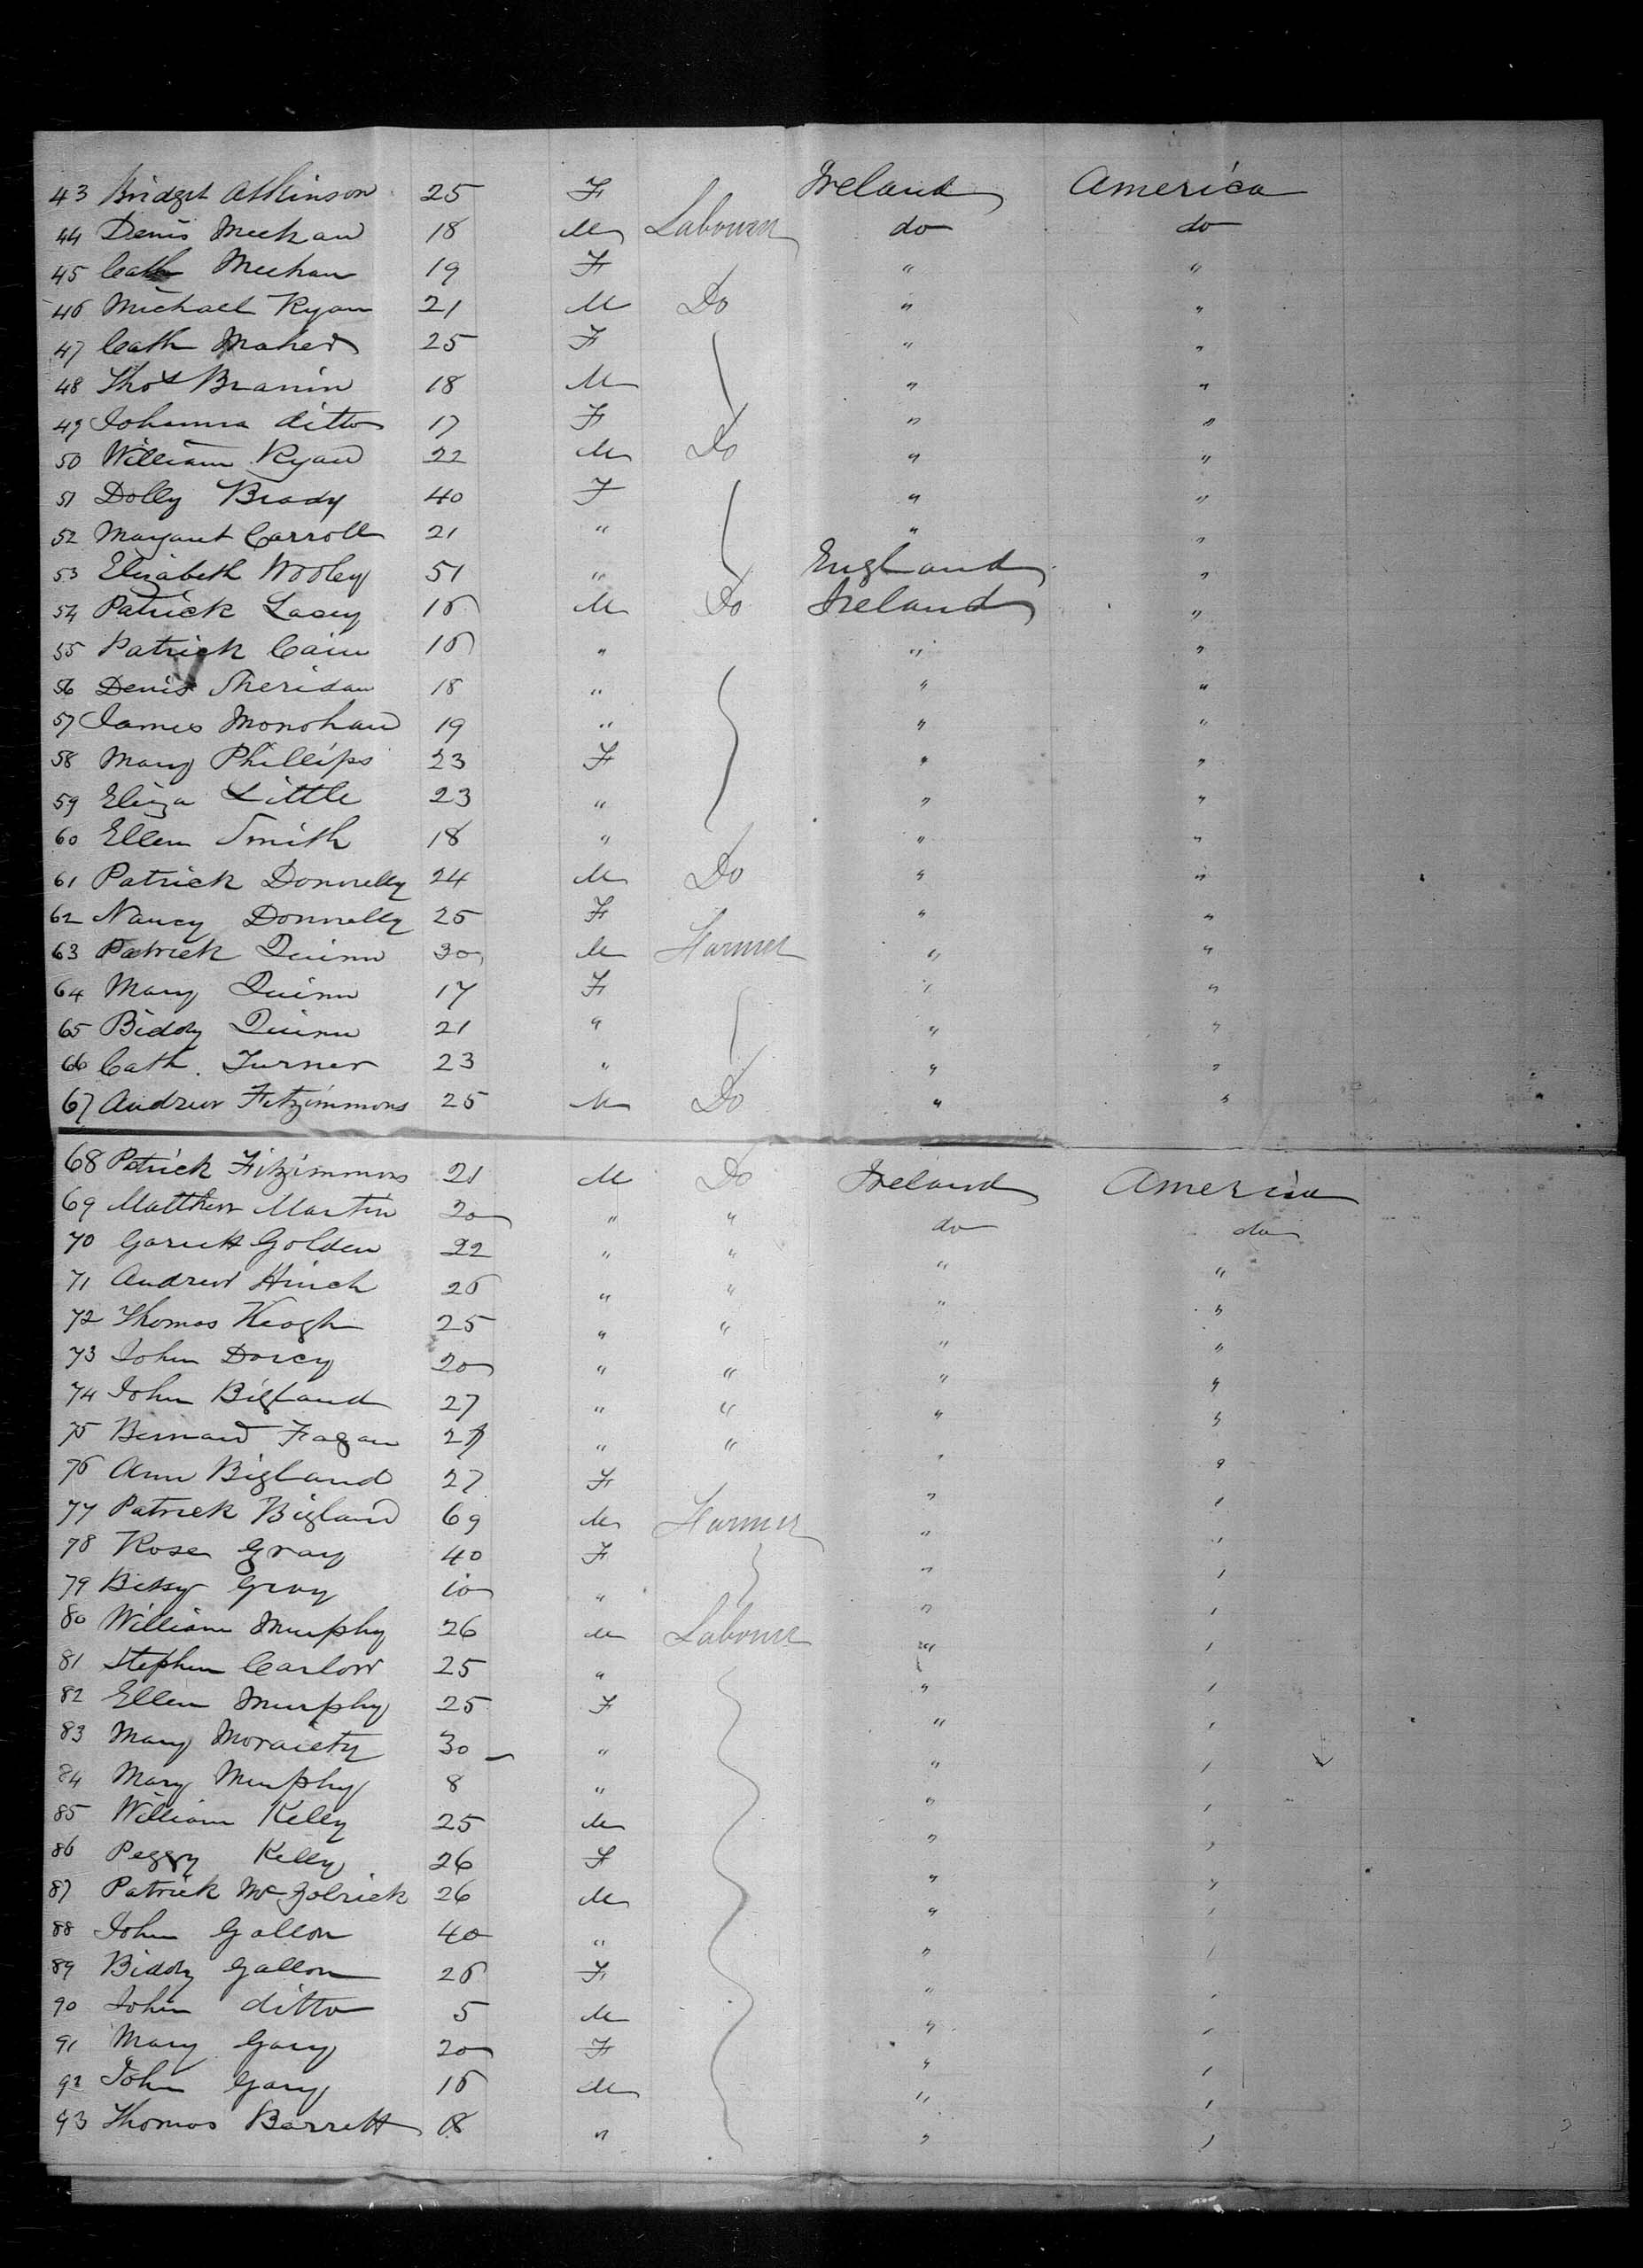 43 Bridget Atkinson 25 F Ireland America
44 Denis Meehan 18 M Labourer do do
45 Cath Meehan 19 F " "
46 Michael Ryan 21 M Do " "
47 Cath Maher 25 F " "
48 Thos Brannin 18 M " "
49 Johanna ditto 17 F " "
50 William Ryan 22 M Do " "
51 Dolly Brady 40 F " "
52 Margaret Carroll 21 " " "
53 Elizabeth Wooley 51 " England "
54 Patrick Lacey 16 M Do Ireland "
55 Patrick Cain 16 " " "
56 Denis Sheridan 18 " " "
57 James Monohan 19 " " "
58 Mary Phillips 23 F " "
59 Eliza Little 23 " " "
60 Ellen Smith 18 " " "
61 Patrick Donnelly 24 M Do " "
62 Nancy Donnelly 25 F " "
63 Patrick Quinn 30 M Farmer " "
64 Mary Quinn 17 F " "
65 Biddy Quinn 21 " " "
66 Cath. Turner 23 " " "
67 Andrew Fitzimmons 25 M Do " "
68 Patrick Fitzimmons 21 M Do Ireland America
69 Matthew Martin 20 " " do do
70 Garrett Golden 22 " " " "
71 Andrew Hinch 26 " " " "
72 Thomas Keogh 25 " " " "
73 John Darcy 20 " " " "
74 John Bigland 27 " " " "
75 Bernard Fagan 27 " " " "
76 Ann Bigland 27 F " "
77 Patrick Bigland 69 M Farmer " "
78 Rose Gray 40 F " "
79 Betsy Gray 10 " " "
80 William Murphy 26 M Labourer " "
81 Stephen Carlow 25 " " "
82 Ellen Murphy 25 F " "
83 Mary Moraiety 30 " " "
84 Mary Murphy 8 " " "
85 William Kelly 25 M " "
86 Peggy Kelly 26 F " "
87 Patrick Mc Golrick 26 M " "
88 John Gallon 40 " " "
89 Biddy Gallon 26 F " "
90 John ditto 5 M " "
91 Mary Gary 20 F " "
92 John Gary 16 M " "
93 Thomas Barrett 18 " " "